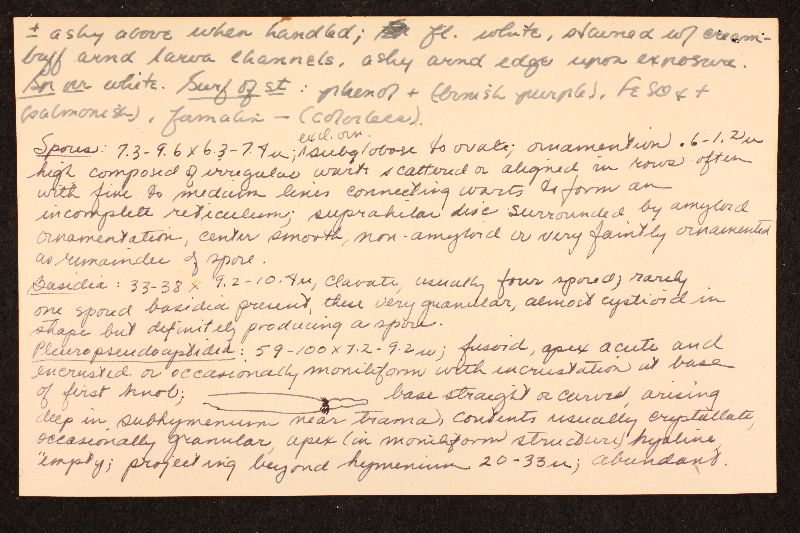 ± ashy above when handled; fl. white, stained w/ cream-
buff arnd larva channels, ashy arnd edge upon exposure.
Sp pr white. Surf of st: phenol + (brnish purple), FeSO4 +
(salmonish), formalin – (colorless).
excl. orn.
Spores: 7.3-9.6 x 6.3-7.4 u; subglobose to ovate; ornamention .6-1.2 u
high composed of irregular warts scattered or aligned in rows often
with fine to medium lines connecting warts to form an
incomplete reticulum; suprahilar disc surrounded by amyloid
ornamentation, center smooth, non-amyloid or very faintly ornamented
as remainder of spore.
Basidia: 33-38 x 9.2-10.4 u, clavate, usually four spored; rarely
one spored basidia present, these very granular, almost cystioid in
shape but definitely producing a spore.
Pleuropseudocystidia: 59-100 x 7.2-9.2 u; fusoid, apex acute and
encrusted or occasionally moniliform with incrustation at base
of first knob; base straight or curved, arising
deep in subhymenium near trama, contents usually crystallate,
occasionally granular, apex (in moniliform structure) hyaline,
"empty; projecting beyond hymenium 20-33 u; abundant.